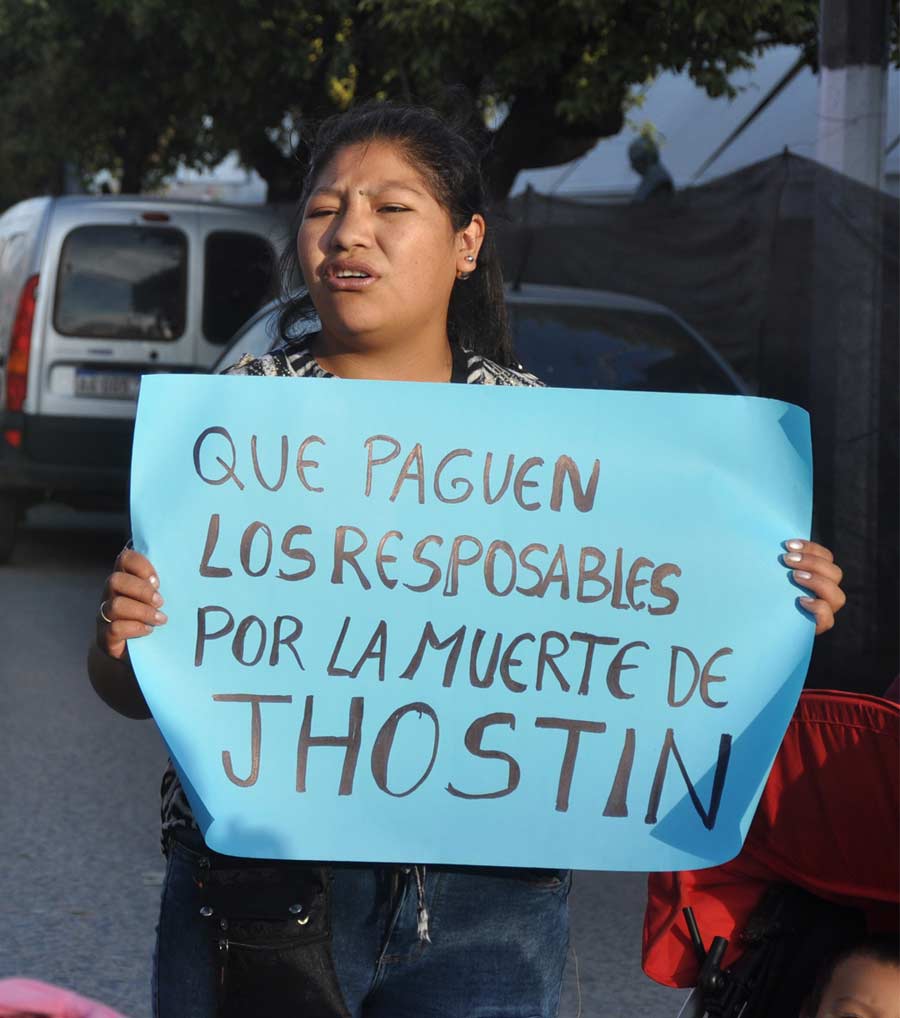 QUE PAGUEN
LOS RESPOSABLES
POR LA MUERTE DE
JHOSTIN